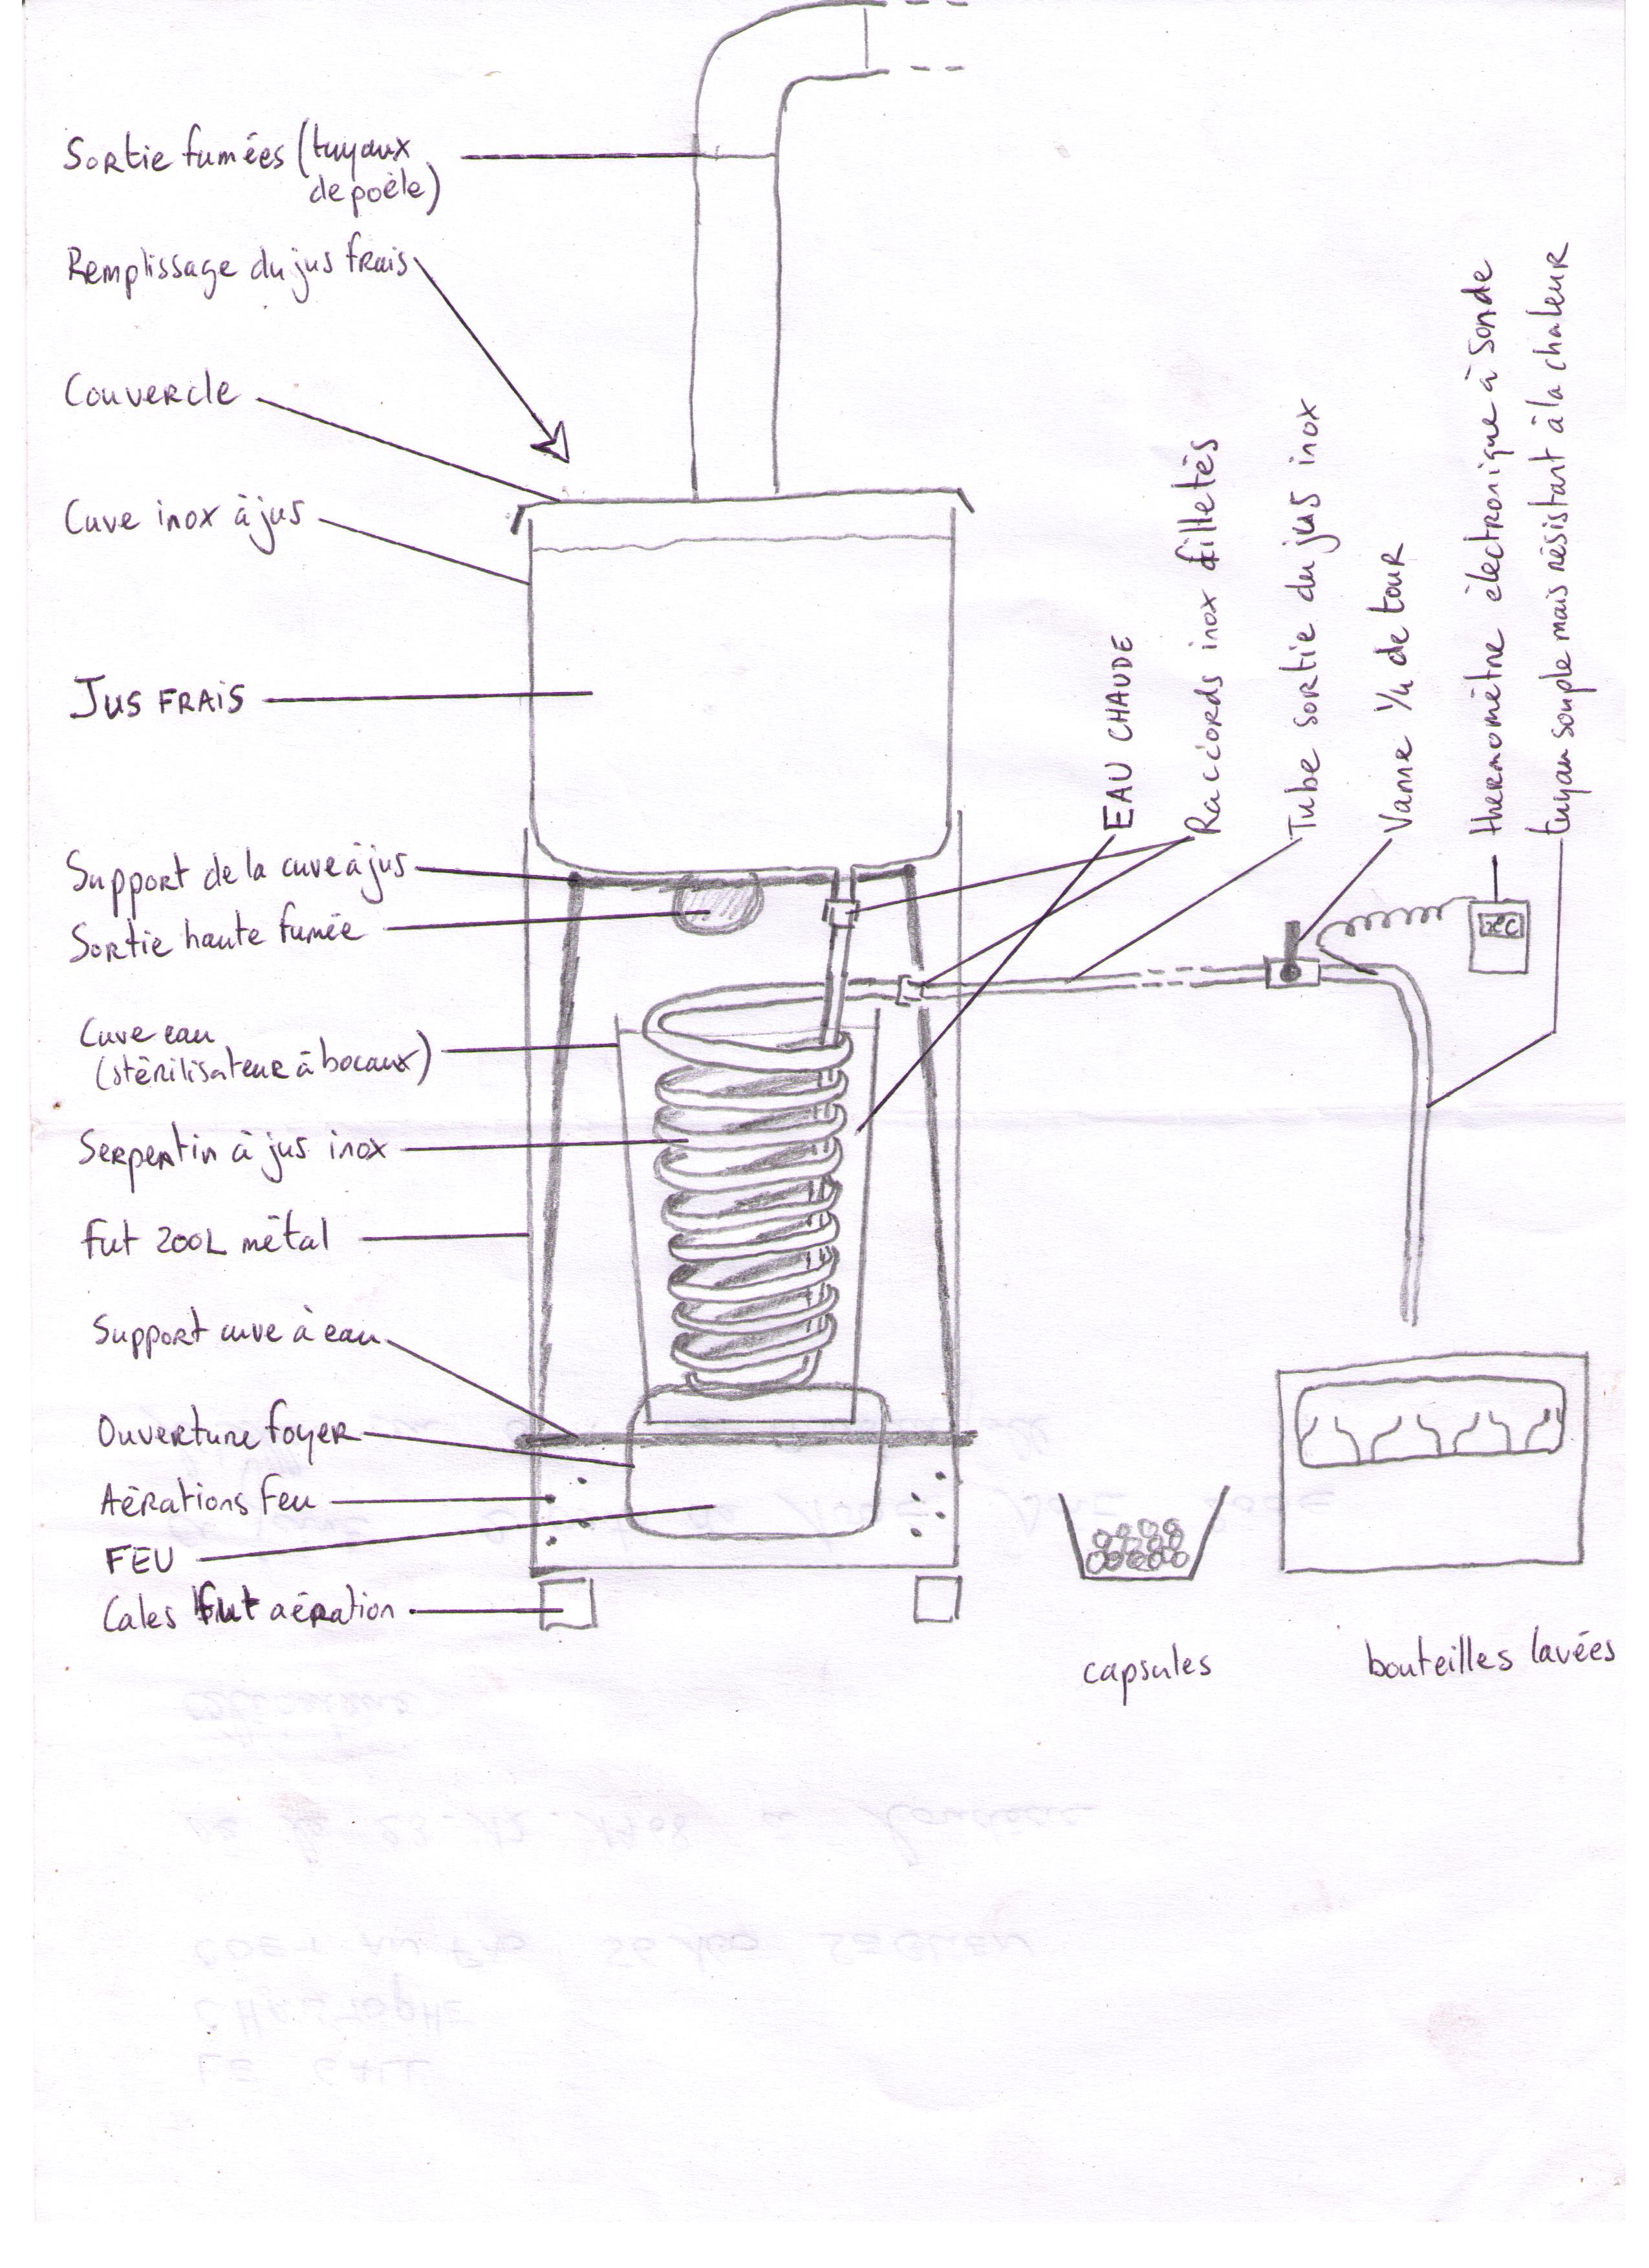 Sortie fumées (tuyaux
de poêle)
Remplissage du jus frais
Couvercle
Cuve inox à jus
JUS FRAIS
Support de la cuve à jus
Sortie haute fumée
Cuve eau
(stérilisateur à bocaux)
Serpentin à jus inox
fut 200L métal
Support cuve à eau
Ouverture foyer
Aérations feu
FEU
Cales fut aération
EAU CHAUDE
Raccords inox filletés
Tube sortie du jus inox
Vanne 1/4 de tour
thermomètre électronique à sonde
tuyau souple mais résistant à la chaleur
capsules
bouteilles lavées